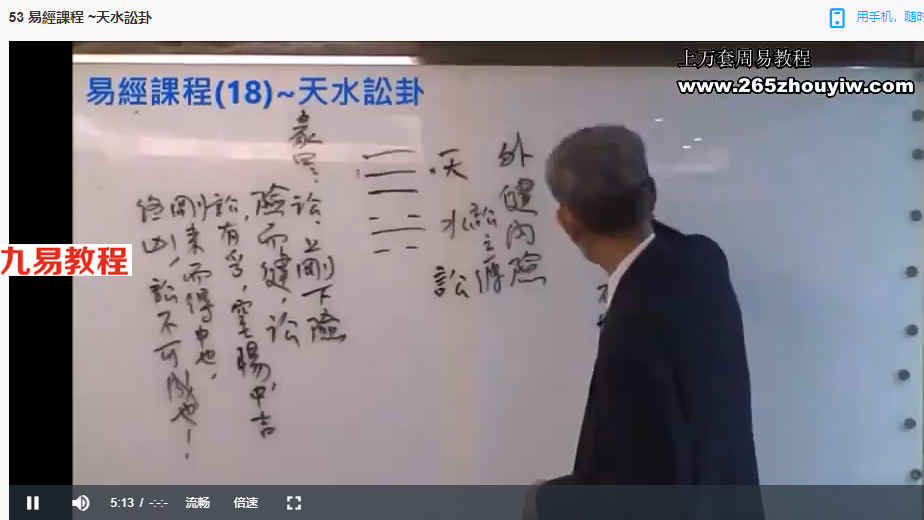 53 易經課程 ~天水訟卦
用手机，随时
上万套周易教程
www.265zhouyiw.com
易經課程(18)~天水訟卦
九易教程
外健內險
天
水
訟
彖曰：
訟，上剛下險
險而健，訟
訟，有孚，窒惕中吉
剛來而得中也，
終凶，訟不可成也！
5:13 / -:-:-
流畅
倍速